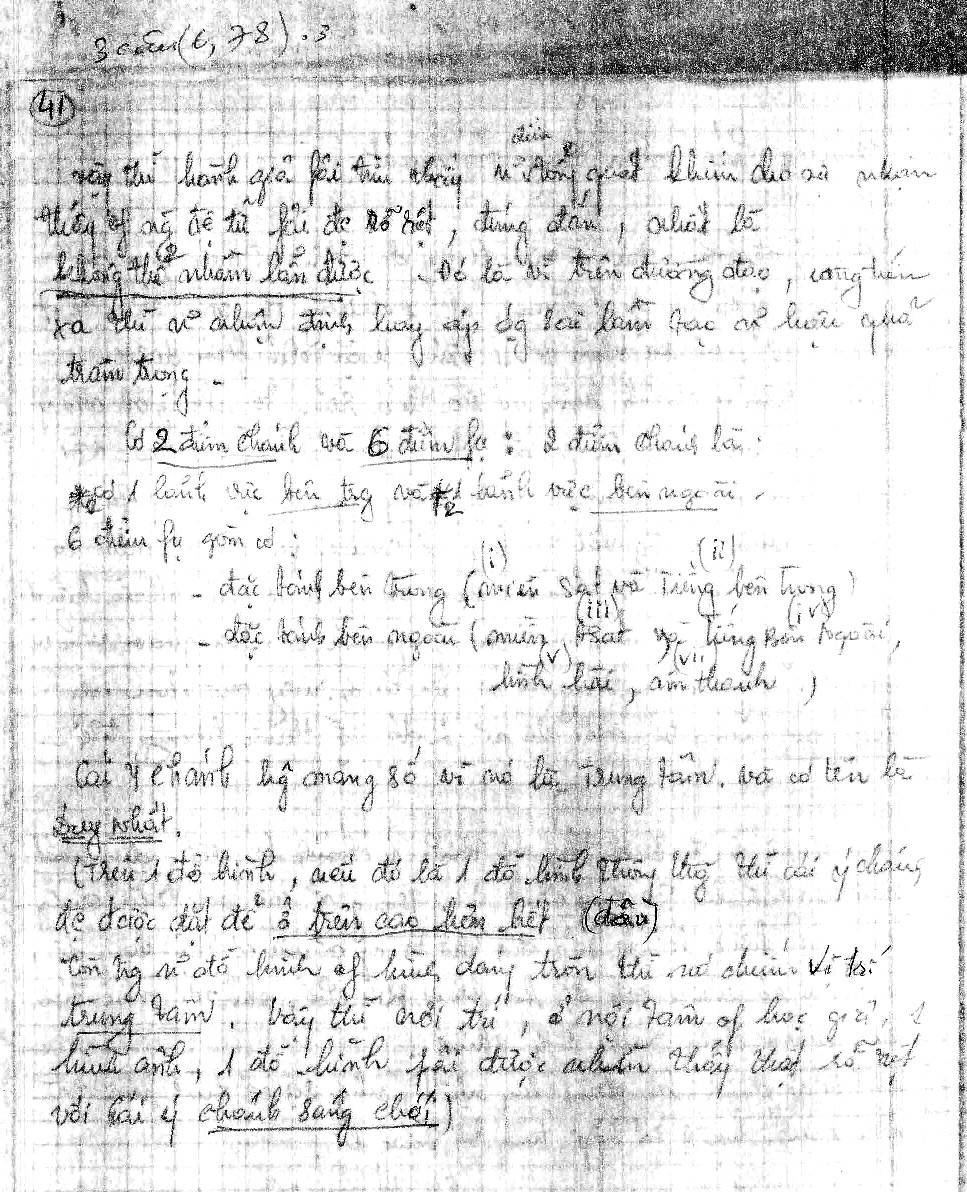 3 câu (6, 78) . 3
41
điểm
vậy thì hành giả fải tìm thấy n~ tổng quát khiến cho sự nhận
thấy of ng đệ tử fải đc rõ rệt, đúng đắn, nhất là
không thể nhầm lẫn được. Đó là vì trên đường đạo, càng tiến
xa thì n~ nhận định hay áp dg sai lầm tạo n~ hậu quả
trầm trọng.
Có 2 điểm chánh và 6 điểm fụ : 2 điểm chánh là :
có 1 lãnh vực bên trg và 1 lãnh vực bên ngoài.
6 điểm fụ gồm có :
(i) (ii)
- đặc tánh bên trong ( sát và Tiếng bên trong)
(iii) (iv)
- đặc tánh bên ngoài ( và Tiếng Bên Ngoài,
(v) (vi)
hình hài, âm thanh )
Cái ý chánh kg mang số vì nó là Trung tâm. và có tên là
Duy nhất.
(Trên 1 đồ hình, nếu đó là 1 đồ hình thông thg thì cái ý chánh
đc được đặt để ở trên cao hơn hết (đầu)
Còn ng n~ đồ hình of hình dạng tròn thì nó chiếm Vị trí
trung tâm. Vậy thì nơi trí, ở nội tâm of học giả, 1
hình ảnh, 1 đồ hình fải được nhìn thấy thật rõ rệt
với cái ý chánh sáng chói)